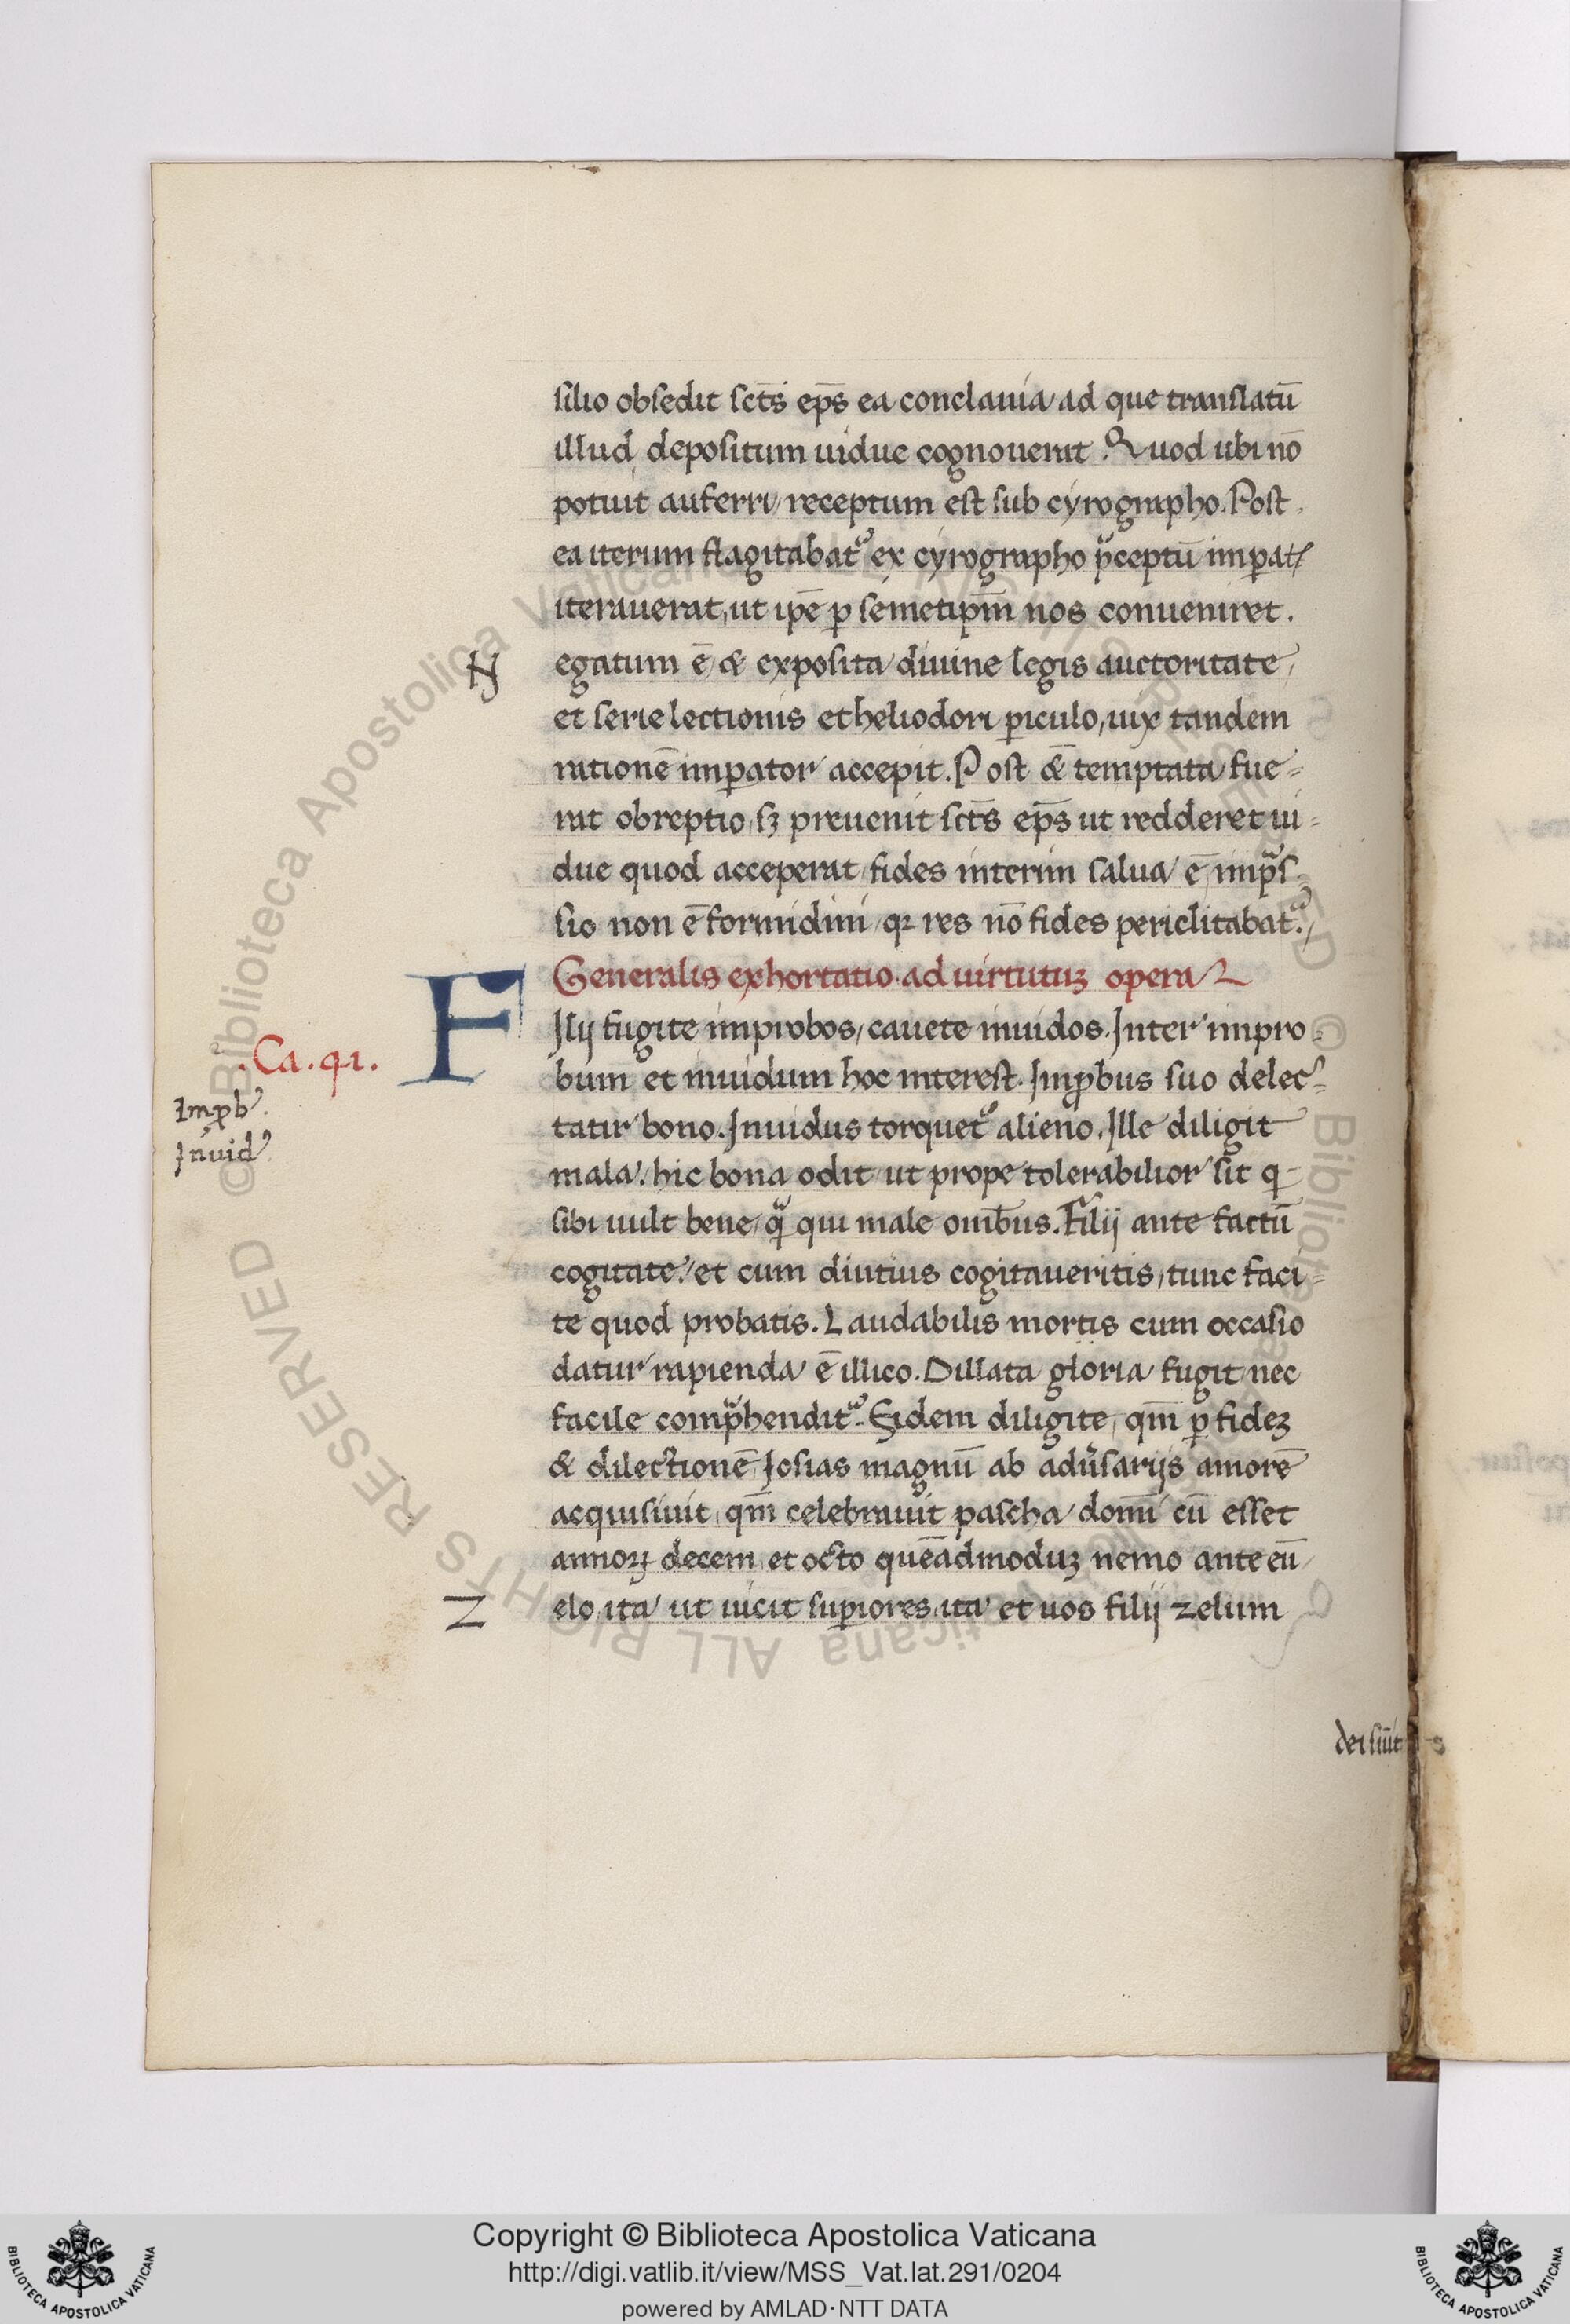 silio obsedit sct̄s ep̄s ea conclauia ad que translatū
illud depositum uidue cognouerat. Quod ubi nō
potuit auferri, receptum est sub cyrographo. Post
ea iterum flagitabat᷑ ex cyrographo p̄ceptū imꝑat᷑
iterauerat, ut ip̄e ꝑ semetip̄m nos conueniret.
N egatum ē, & exposita diuine legis auctoritate,
et serie lectionis et heliodori ꝑiculo, uix tandem
rationē imꝑator accepit. Post & temptata fue-
rat obreptio, sꝫ preuenit scts̄ ep̄s ut redderet ui-
due quod acceperat fides interim salua ē, imp̄s-
sio non ē formidini qꝛ res nō fides periclitabat᷑.
Generalis exhortatio ad uirtutuꝫ opera
.Ca. qı.
F Ilij fugite improbos, cauete inuidos. Inter impro-
bum et inuidum hoc interest. Imꝓbus suo delec-
Imꝓb᷒.
tatur bono. Inuidus torquet᷑ alieno. Ille diligit
Inuid᷒
mala: hic bona odit ut prope tolerabilior sit q
sibi uult bene, qͣ̄ qui male omib̄us. Filij ante factū
cogitate: et cum diutius cogitaueritis, tunc faci-
te quod probatis. Laudabilis mortis cum occasio
datur rapienda ē illico. Dillata gloria fugit nec
facile comp̄hendit᷑. Fidem diligite, qm̄ ꝑ fideꝫ
& dilectionē Iosias magnū ab adu̓sarijs amorē
acquisiuit, qm̄ celebrauit pascha domī cū esset
annoꝝ decem et octo quēadmoduꝫ nemo ante eū
Z elo, ita ut uicit suꝑiores, ita et uos filij zelum
dei sūt
Copyright © Biblioteca Apostolica Vaticana
http://digi.vatlib.it/view/MSS_Vat.lat.291/0204
powered by AMLAD·NTT DATA
BIBLIOTECA APOSTOLICA VATICANA
BIBLIOTECA APOSTOLICA VATICANA